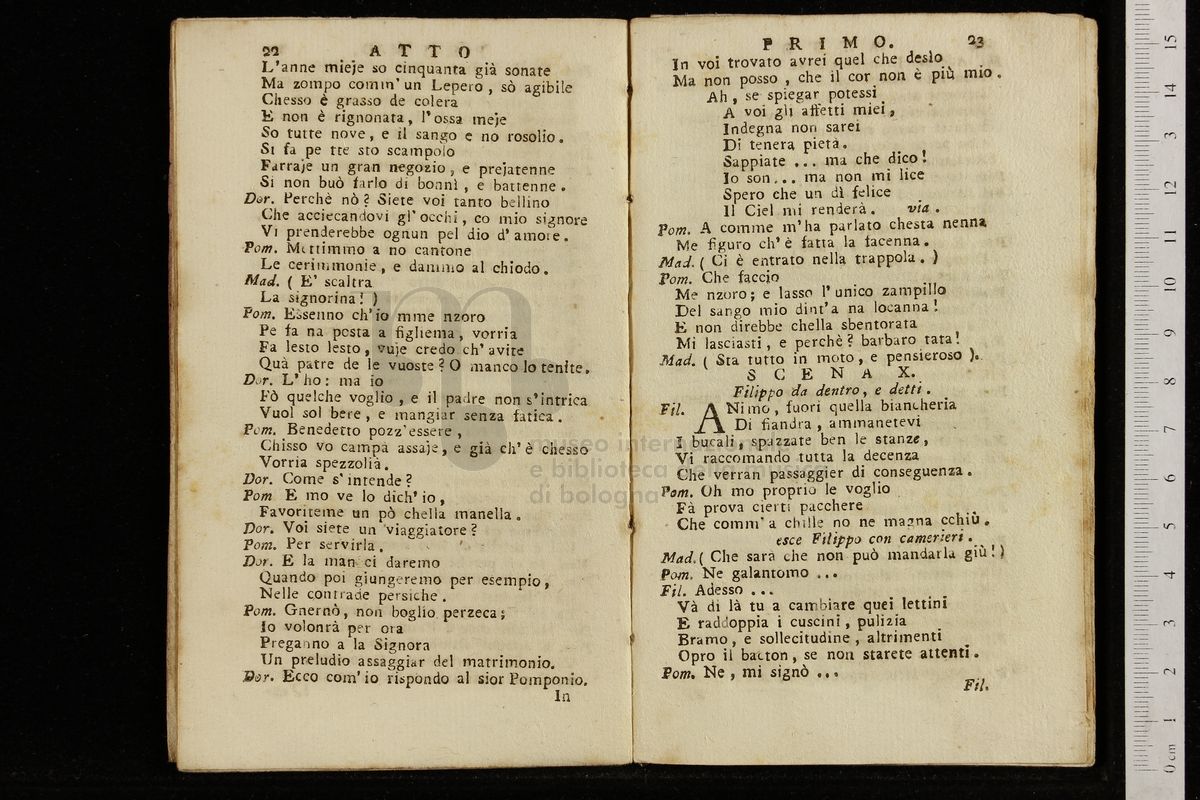 22 A T T O
L'anne mieje so cinquanta già sonate
Ma zompo comm' un Lepero, sò agibile
Chesso è grasso de colera
E non è rignonata, l'ossa meje
So tutte nove, e il sango e no rosolio.
Si fa pe tte sto scampolo
Farraje un gran negozio, e prejatenne
Si non buò farlo di bonnì, e battenne.
Dor. Perchè nò? Siete voi tanto bellino
Che acciecandovi gl' occhi, co mio signore
Vi prenderebbe ognun pel dio d' amore.
Pom. Mettimmo a no cantone
Le cerimmonie, e dammo al chiodo.
Mad. ( E' scaltra
La signorina! )
Pom. Essenno ch' io mme nzoro
Pe fa na posta a figliema, vorria
Fa lesto lesto, vuje credo ch' avite
Quà patre de le vuoste? O manco lo tenite.
Dor. L' ho: ma io
Fò quelche voglio, e il padre non s'intrica
Vuol sol bere, e mangiar senza fatica.
Pom. Benedetto pozz' essere,
Chisso vo campà assaje, e già ch' è chesso
Vorria spezzolià.
Dor. Come s' intende?
Pom E mo ve lo dich' io,
Favoriteme un pò chella manella.
Dor. Voi siete un viaggiatore?
Pom. Per servirla.
Dor. E la man ci daremo
Quando poi giungeremo per esempio,
Nelle contrade persiche.
Pom. Gnernò, non boglio perzeca;
Io volonrà per ora
Preganno a la Signora
Un preludio assaggiar del matrimonio.
Dor. Ecco com' io rispondo al sior Pomponio.
In
P R I M O. 23
In voi trovato avrei quel che deslo
Ma non posso, che il cor non è più mio.
Ah, se spiegar potessi
A voi gli affetti miei,
Indegna non sarei
Di tenera pietà.
Sappiate ... ma che dico!
Io son... ma non mi lice
Spero che un dì felice
Il Ciel mi renderà. via.
Pom. A comme m'ha parlato chesta nenna
Me figuro ch' è fatta la facenna.
Mad. ( Ci è entrato nella trappola. )
Pom. Che faccio
Me nzoro; e lasso l' unico zampillo
Del sango mio dint'a na locanna!
E non direbbe chella sbentorata
Mi lasciasti, e perchè? barbaro tata!
Mad. ( Sta tutto in moto, e pensieroso ).
S C E N A X.
Filippo da dentro, e detti.
Fil. ANimo, fuori quella biancheria
Di fiandra, ammanetevi
I bucali, spazzate ben le stanze,
Vi raccomando tutta la decenza
Che verran passaggier di conseguenza.
Pom. Oh mo proprio le voglio
Fà prova cierti pacchere
Che comm' a chille no ne magna cchiù.
esce Filippo con camerieri.
Mad.( Che sarà che non può mandarla giù!)
Pom. Ne galantomo ...
Fil. Adesso ...
Và di là tu a cambiare quei lettini
E raddoppia i cuscini, pulizia
Bramo, e sollecitudine, altrimenti
Opro il batton, se non starete attenti.
Pom. Ne, mi signò ...
Fil.
museo internazionale
e biblioteca della musica
di bologna
0 cm 1 2 3 4 5 6 7 8 9 10 11 12 13 14 15